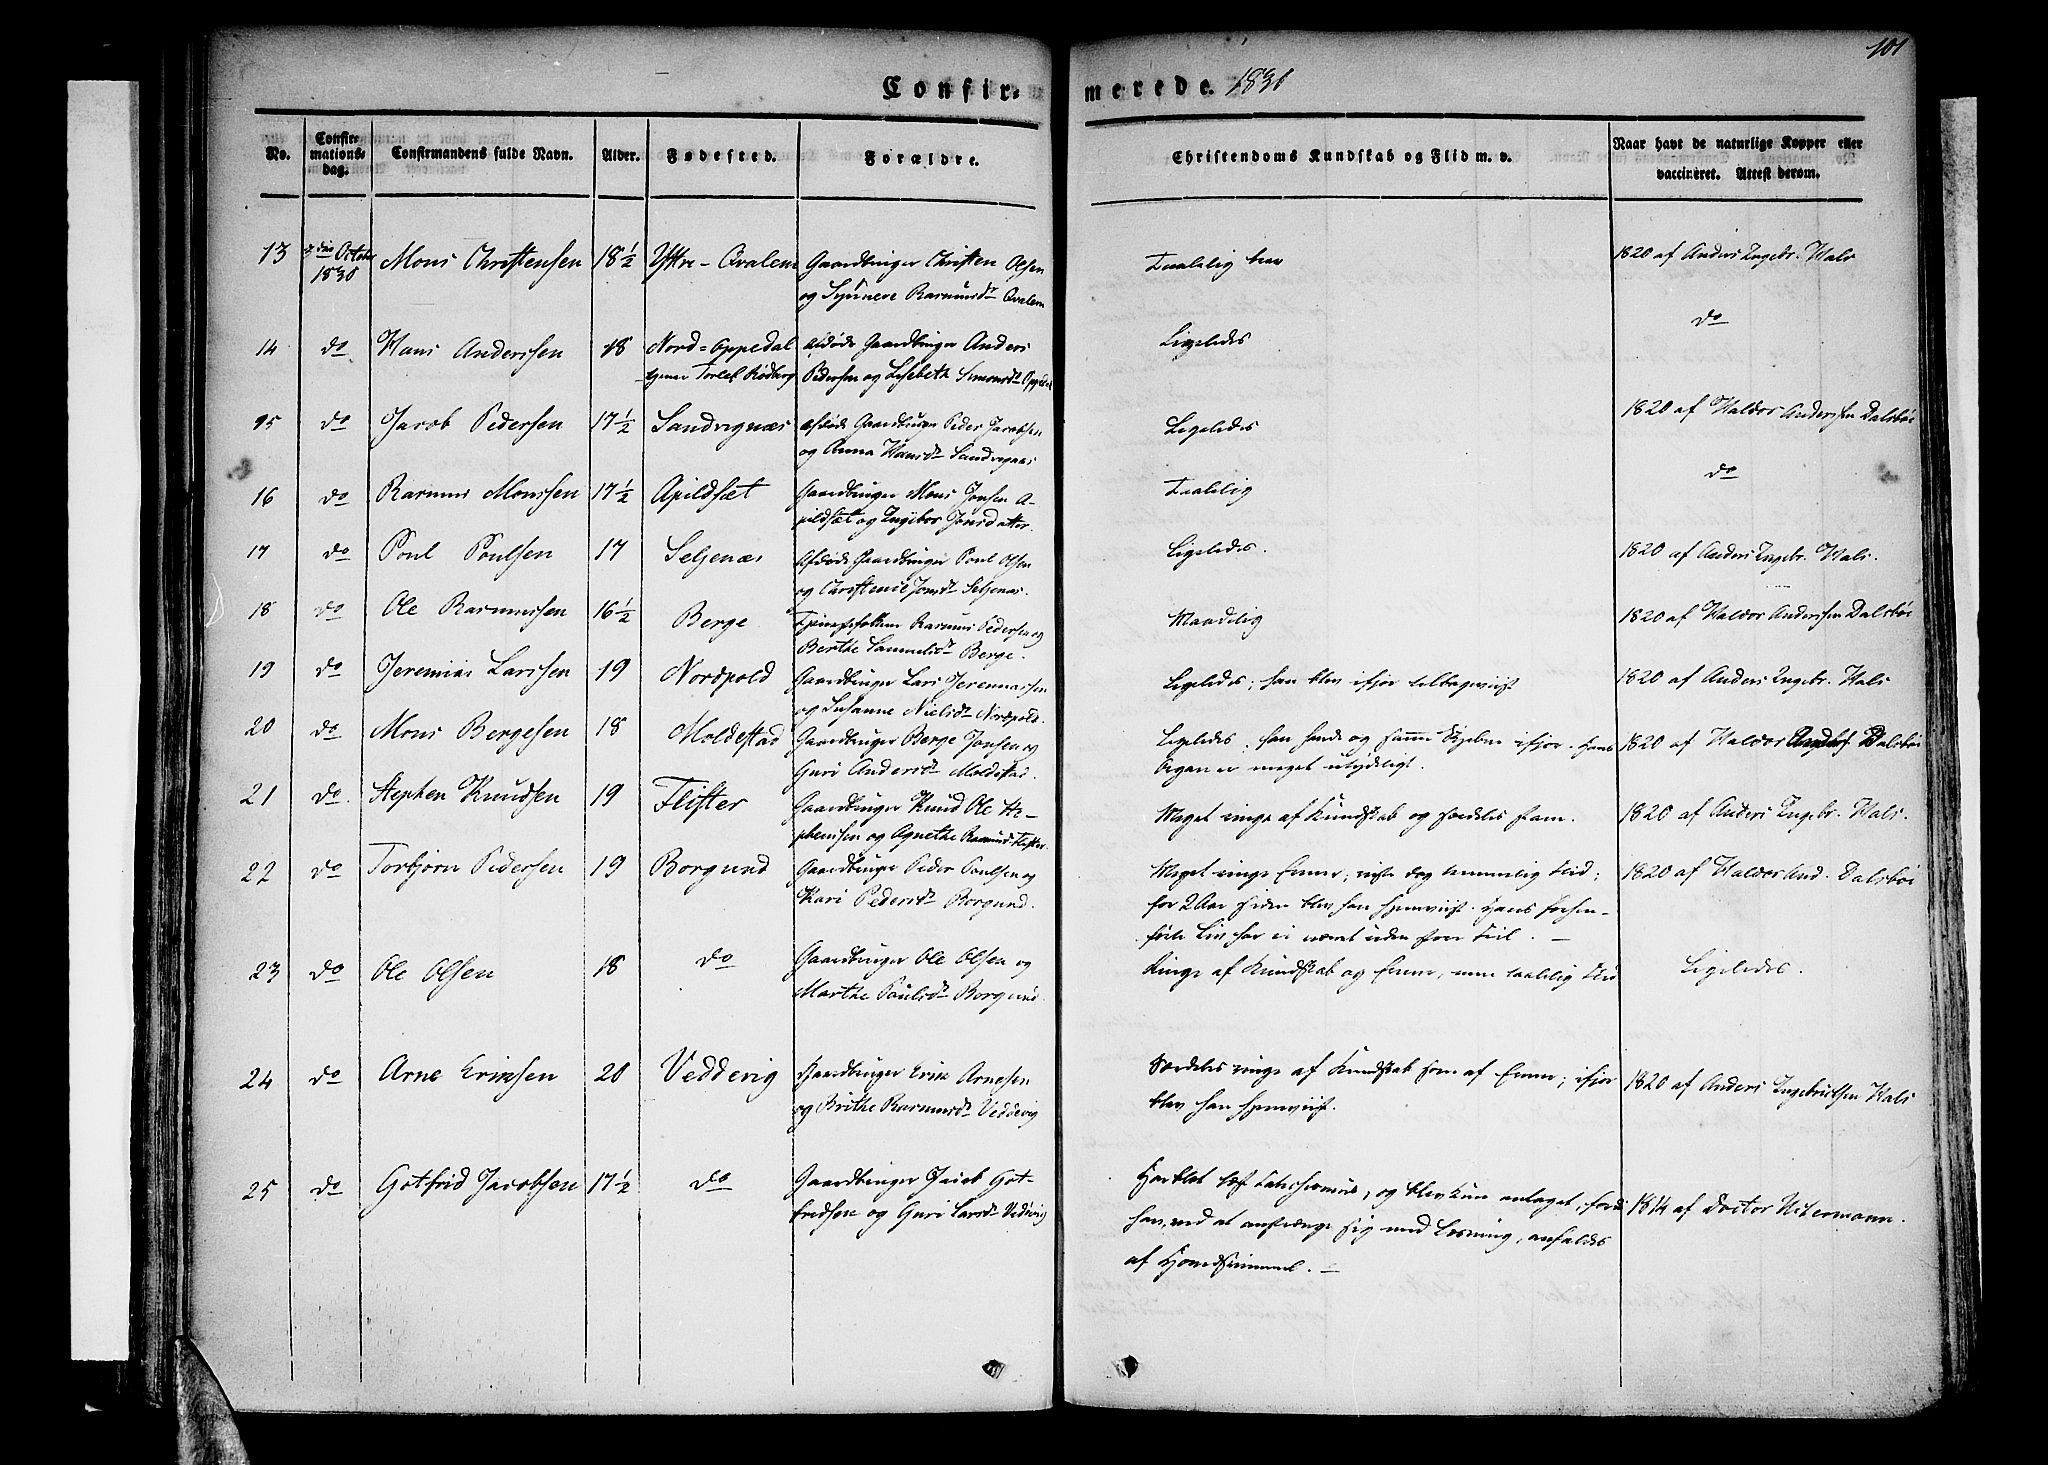 101
Confirmerede. 1830
No.
Confirmationsdag.
Confirmandens fulde Navn.
Alder.
Fødested.
Forældre.
Christendoms Kundskab og Flid m. v.
Naar havt de naturlige Kopper eller vaccineret. Attest derom.
13 3die October 1830 Mons Christensen 18½ Yttre-Qvalem Gaardbruger Christen Olsen og Synneve Rasmusdr Qvalem Taalelig 1820 af Anders Ingebr. Hals
14 do Hans Anderssen 18 Nord-Oppedal tjener Afdøde Gaardbruger Anders Pedersen og Lisebeth Simonsdr Oppedal Ligeledes do
15 do Jacob Pedersen 17½ Sandvignæs Afdøde Gaardbruger Peder Jacobsen og Anna Hansdr Ligeledes 1820 af Haldor Anderssen Dalsbøe
16 do Rasmus Monssen 17½ Apildsæt Gaardbruger Mons Jonsen Apildsæt og Ingebor Jonsdatter Taalelig do
17 do Poul Poulsen 17 Seljenæs Afdøde Gaardbruger Poul Olsen og Jonsdr Seljenæs. Ligeledes. 1820 af Anders Ingebr. Hals.
18 do Ole Rasmussen 16½ Berge Rasmus Pedersen og Berthe Samuelsdr Berge. Maadelig 1820 af Haldor Anderssen Dalsbøe
19 do Jeremias Larssen 19 Nordpold Gaardbruger Lars Jeremiassen og Susanne Nielsdr Nordpold. Ligeledes; han blev ifjor tilbageviist 1820 af Anders Ingebr. Hals
20 do Mons Bergesen 18 Moldestad Gaardbruger Berge Jonsen og Guri Andersdr Moldestad. Ligeledes; han havde og samme Skjebne ifjor. Hans Organ er meget utydeligt. 1820 af Haldor Dalsbøe
21 do. Stephen Knudsen 19 Flister Gaardbruger Knud Ole Stephenssen og Agnethe Rasmusdr Flister. Meget ringe af Kundskab og 1820 af Anders Ingebr. Hals.
22 do Torbjørn Pedersen 19 Borgund Gaardbruger Peder Poulsen og Kari Pedersdr Borgund. Meget ringe Evner; viste dog temmelig Flid; for 2 Aar siden blev han hjemviist. Hans Liv har ei været uden 1820 af Haldor And. Dalsbøe
23 do Ole Olsen 18 do Gaardbruger Ole Olsen og Marthe Poulsdr Borgund. Ringe af Kundskab og Evner, men taalelig Flid Ligeledes.
24 do Arne Eriksen 20 Veddevig Gaardbruger Erik Arnesen og Brithe Rasmusdr Veddevig Særdeles ringe af Kundskab som af Evner; ifjor blev han hjemviist. 1820 af Anders Ingebrictsen Hals
25 do Gotfrid Jacobsen 17½ do Gaardbruger Jacob Gotfridsen og Guri Larsdr Vedevig Har blot læst og blev kun antaget, fordi han, ved at anstrænge sig med Læsning, anfaldes af Hovedsvimmel. 1814 af Doctor Utermann.